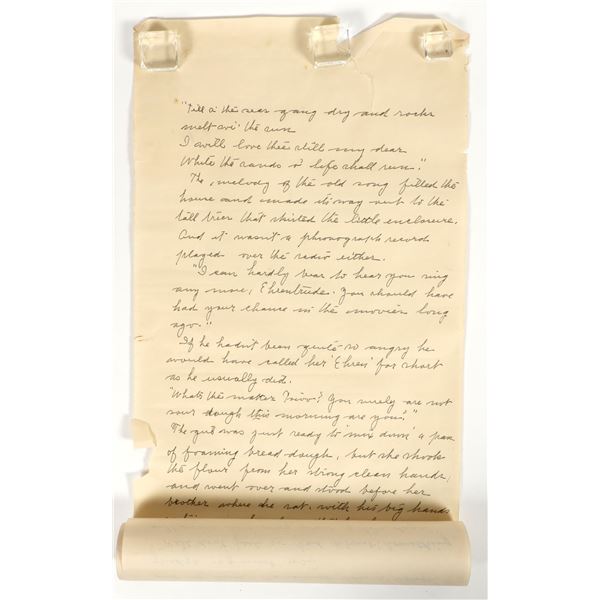 "Till a' the seas gang dry and rocks
melt wi' the sun
I will love thee still my dear
While the sands o' life shall run."
The melody of the old song filled the
house and made its way out to the
tall trees that skirted the little enclosure.
And it wasn't a phonograph record
played over the radio either.
"I can hardly bear to hear you sing
any more, Ehrentrude. You should have
had your chance in the movies long
ago."
If he hadn't been quite so angry he
would have called her 'Ehren' for short
as he usually did.
"What's the matter? You surely are not
sour dough this morning are you?"
The girl was just ready to 'mix down' a pan
of foaming bread dough, but she shook
the flour from her strong clean hands,
and went over and stood before her
brother where he sat, with his big hands